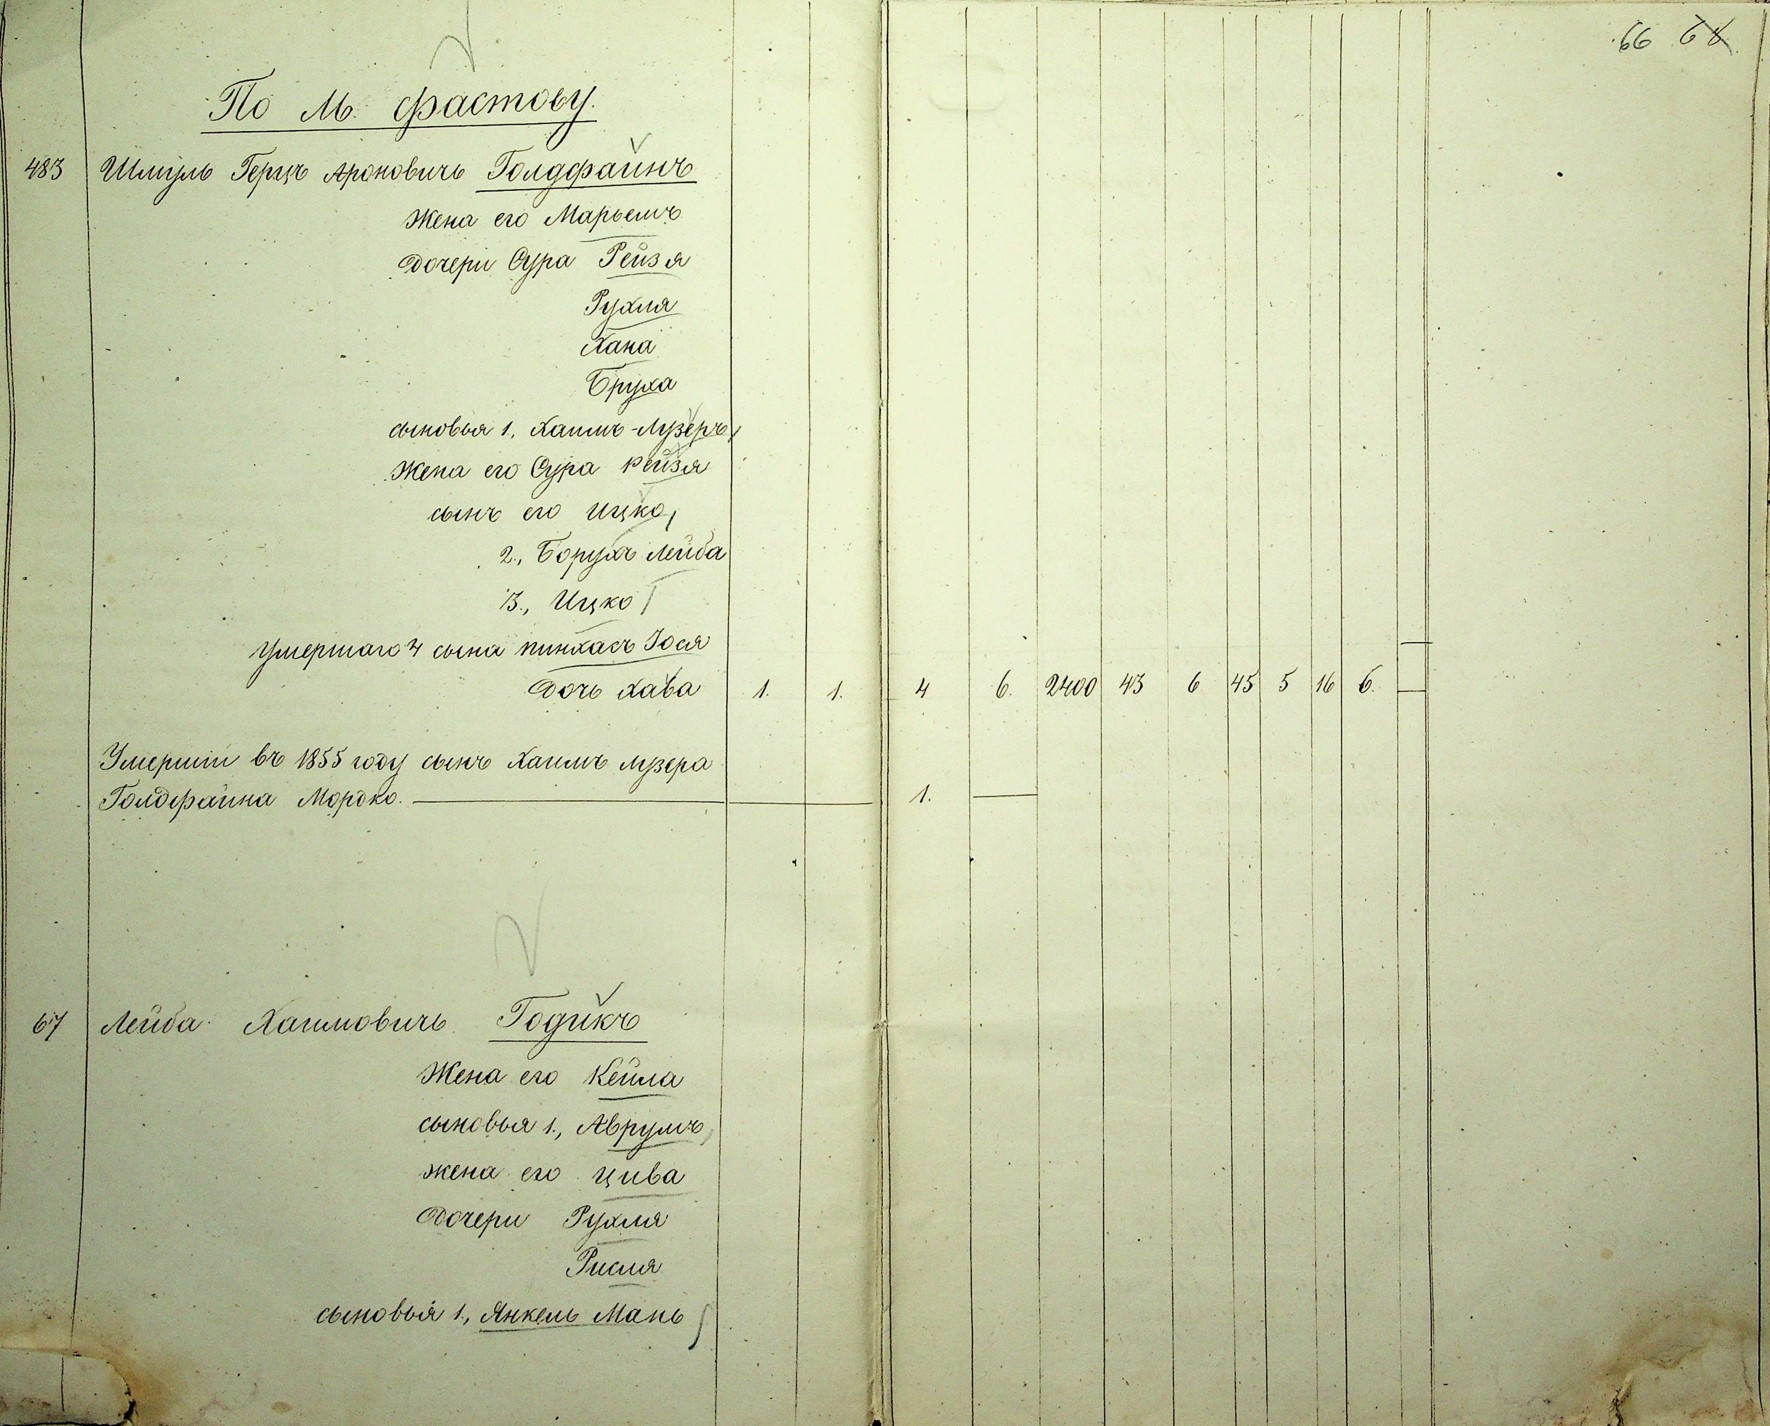 66 68
По М. Фастову.
483 Шмуль Герцъ Ароновичъ Голдфайнъ
Жена его Марьемъ
Дочери Сура Рейзя
Рухля
Хана
Бруха
сыновья 1, Хаимъ-Лузеръ,
Жена его Сура Рейзя
сынъ его Ицко,
2, Борухъ Лейба
3, Ицко
Умершаго 4 сына Пинхасъ Іося
Дочь Хава 1. 1. 4 6. 2400 43 6 45 5 16 6.
Умершій въ 1855 году сынъ Хаимъ Лузера
Голдфайна Мордко. 1.
67 Лейба Хаимовичъ Годикъ
Жена его Кейла
сыновья 1, Аврумъ,
жена его Цива
Дочери Рухля
Рисля
сыновья 1, Янкель Мань